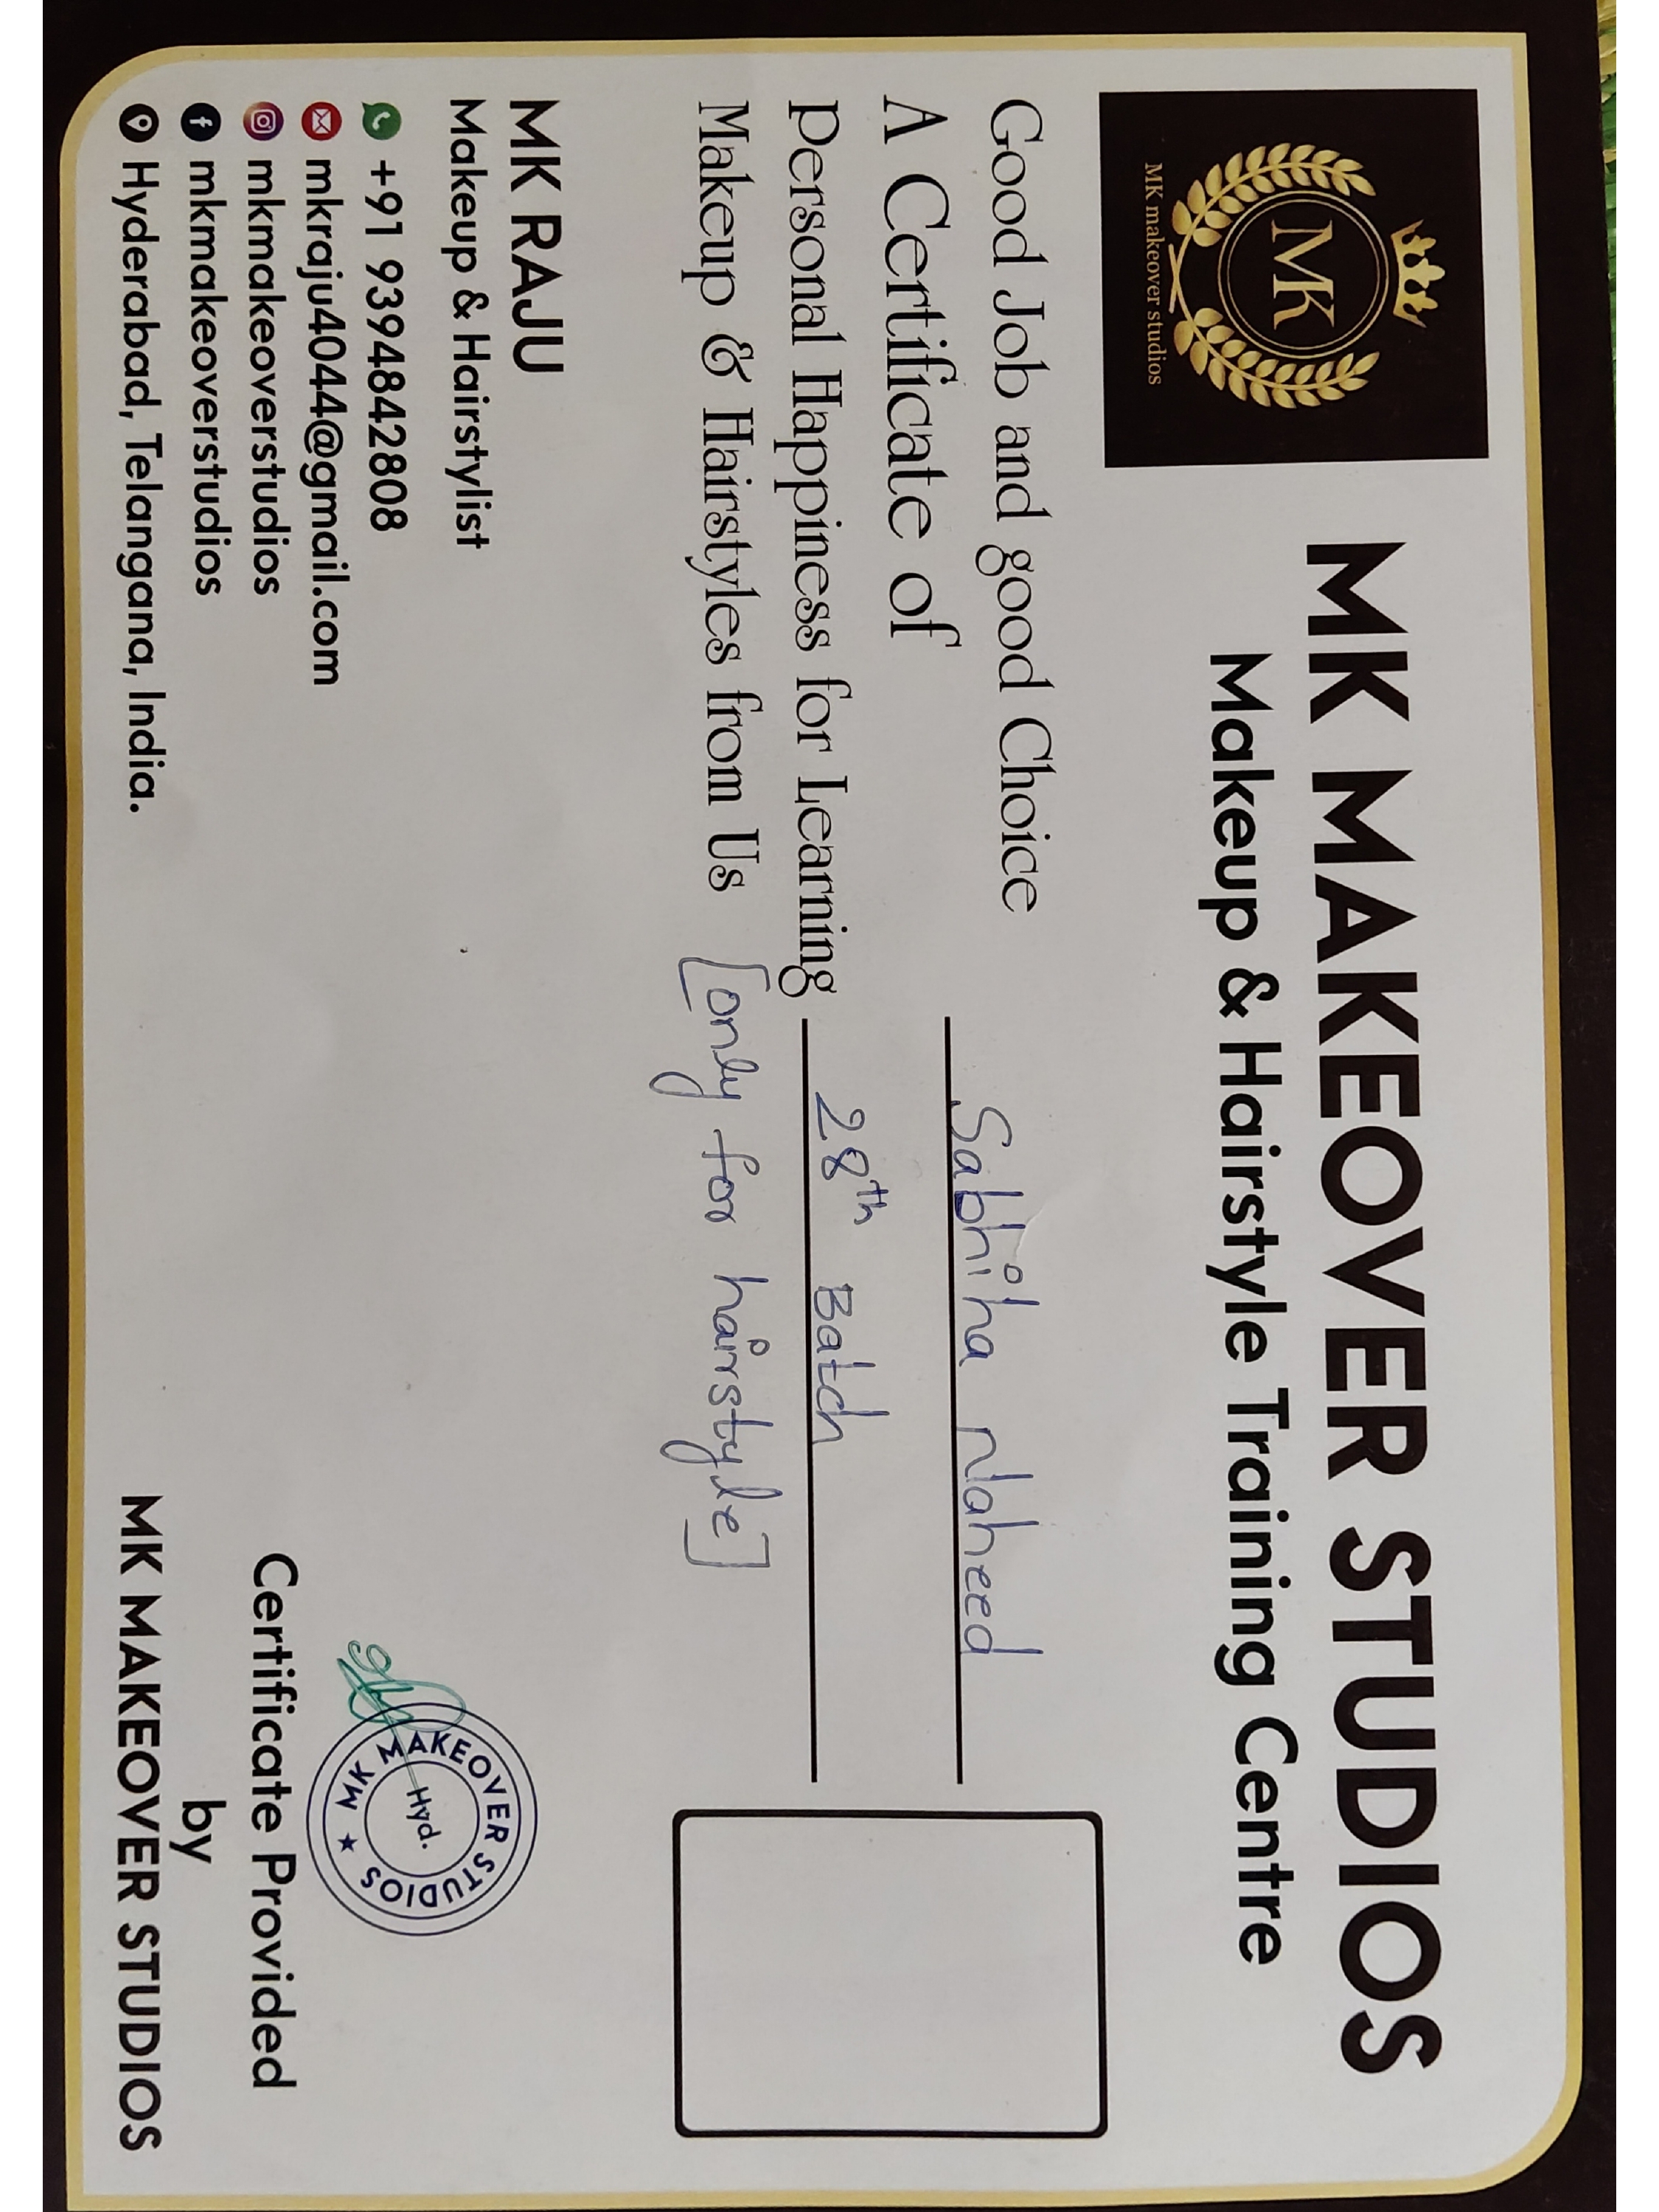 MK MAKEOVER STUDIOS
Makeup & Hairstyle Training Centre
MK
MK makeover studios
Good Job and good Choice
A Certificate of Sabhiha Naheed
Personal Happiness for Learning 28th Batch
Makeup & Hairstyles from Us [only for hairstyle]
MK RAJU
Makeup & Hairstylist
+91 9394842808
mkraju4044@gmail.com
mkmakeoverstudios
mkmakeoverstudios
Hyderabad, Telangana, India.
MK MAKEOVER STUDIOS ★
Hyd.
Certificate Provided
by
MK MAKEOVER STUDIOS